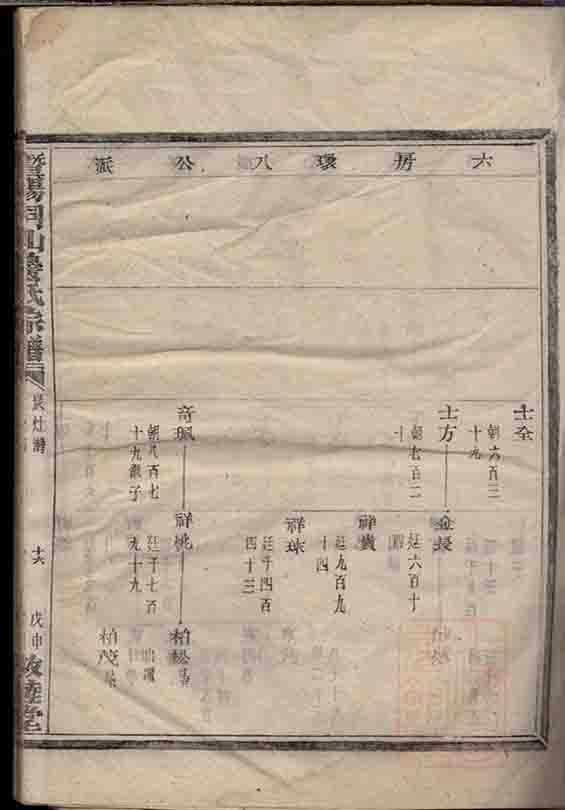 六房環八公派
士全
朝六百三
十九
士方
朝七百二
十
金長
廷六百十
祥貴
廷九百九
十四
祥球
廷千四百
四十三
奇珮
朝八百七
十九
子
祥桃
廷千七百
九十九
柏松
柏茂
暨陽同山邊氏宗譜
十六
戊申
敦睦堂